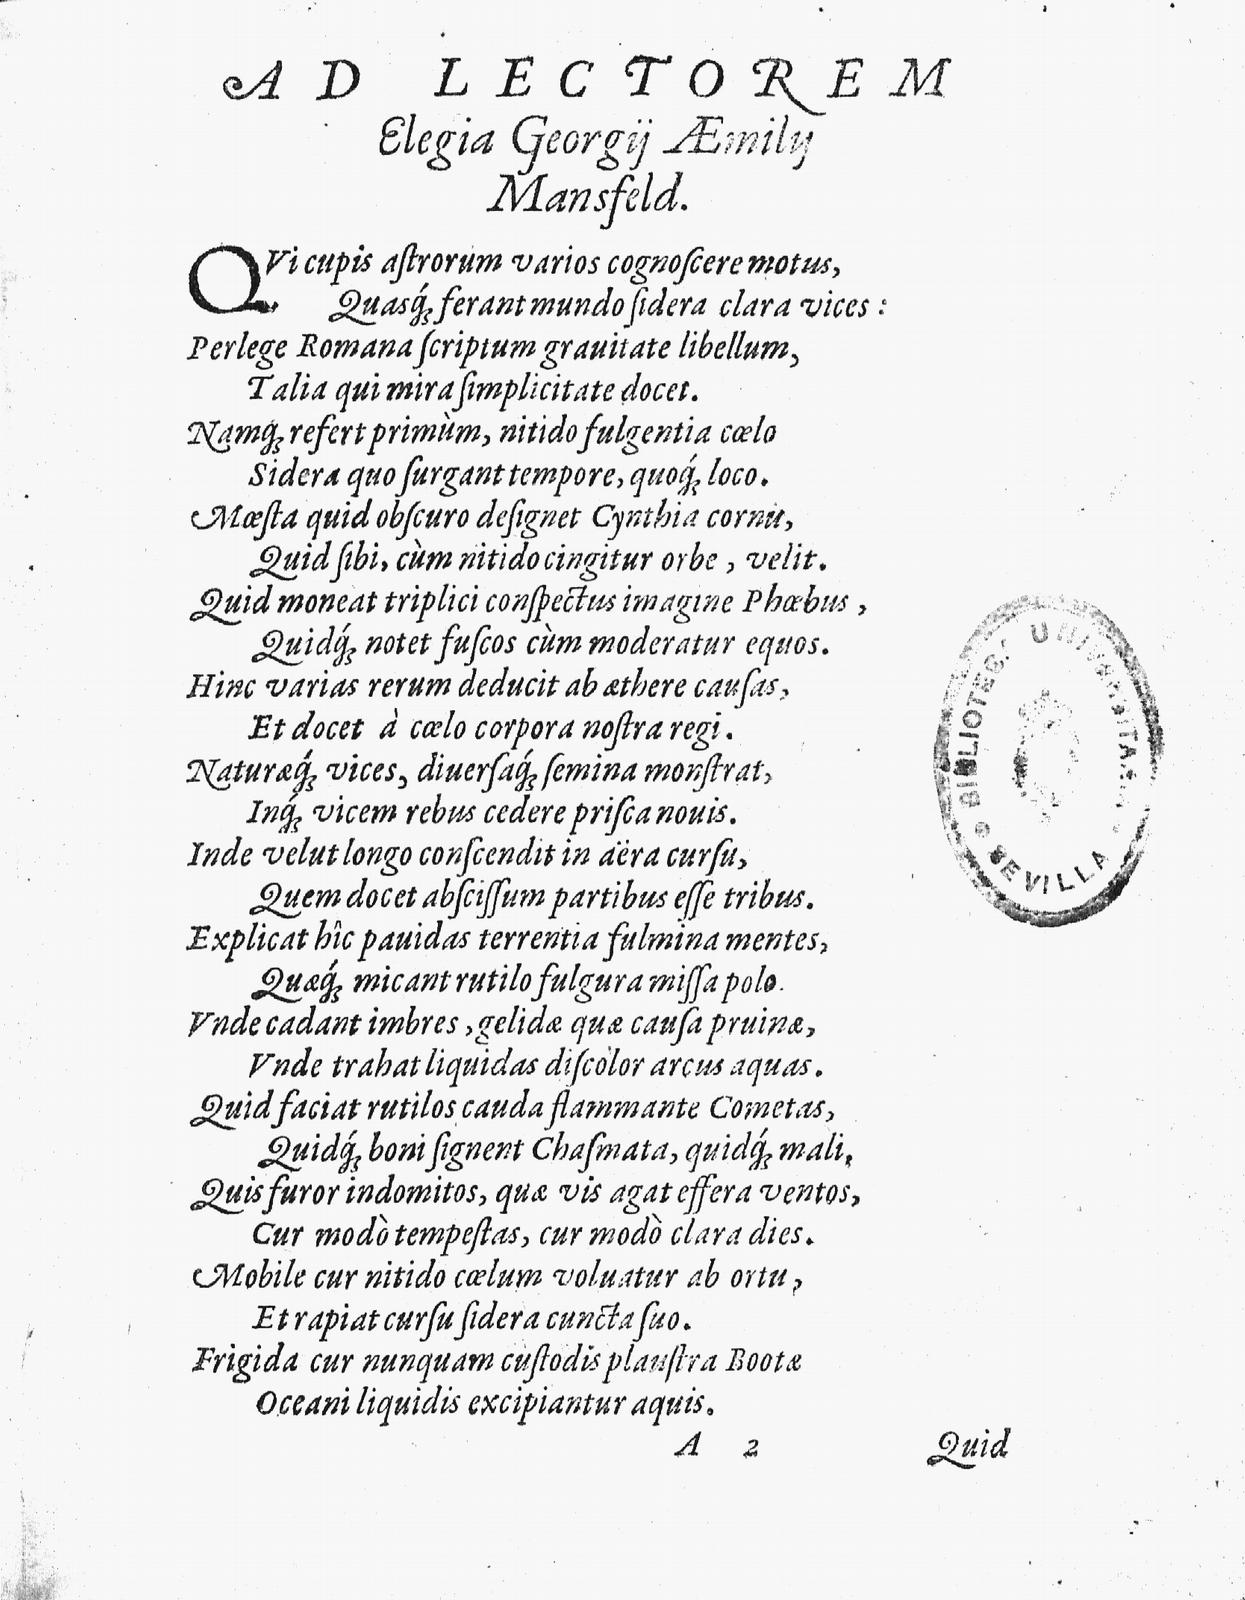 AD LECTOREM
Elegia Georgij Æmilij
Mansfeld.
QVi cupis aſtrorum varios cognoſcere motus,
Quasq́ꝫ ferant mundo ſidera clara vices :
Perlege Romana ſcriptum grauitate libellum,
Talia qui mira ſimplicitate docet.
Namqꝫ refert primùm, nitido fulgentia cœlo
Sidera quo ſurgant tempore, quoq́ꝫ loco.
Mœſta quid obſcuro deſignet Cynthia cornu,
Quid ſibi, cùm nitido cingitur orbe , velit.
Quid moneat triplici conſpectus imagine Phœbus ,
Quidq́ꝫ notet fuſcos cùm moderatur equos.
Hinc varias rerum deducit ab æthere cauſas,
Et docet à cœlo corpora noſtra regi .
Naturæq́ꝫ vices, diuerſaq́ꝫ ſemina monſtrat,
Inq́ꝫ vicem rebus cedere priſca nouis.
Inde velut longo conſcendit in aëra curſu,
Quem docet abſciſſum partibus eſſe tribus.
Explicat hîc pauidas terrentia fulmina mentes,
Quæq́ꝫ micant rutilo fulgura miſſa polo.
Vnde cadant imbres , gelidæ quæ cauſa pruinæ,
Vnde trahat liquidas diſcolor arcus aquas.
Quid faciat rutilos cauda flammante Cometas,
Quidq́ꝫ boni ſignent Chaſmata, quidq́ꝫ mali,
Quis furor indomitos, quæ vis agat effera ventos,
Cur modò tempeſtas, cur modò clara dies.
Mobile cur nitido cœlum voluatur ab ortu ,
Et rapiat curſu ſidera cuncta ſuo.
Frigida cur nunquam cuſtodis plauſtra Bootæ
Oceani liquidis excipiantur aquis.
A 2 Quid
BIBLIOTECA UNIVERSITARIA
SEVILLA